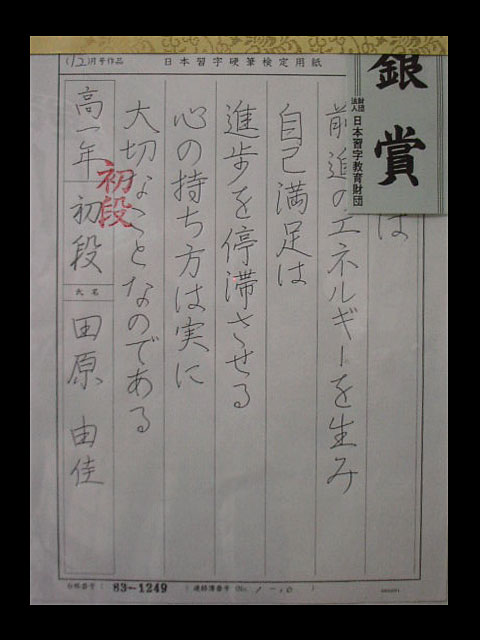 (12)月号作品
日本習字硬筆検定用紙
銀賞
財団法人 日本習字教育財団
は
前進のエネルギーを生み
自己満足は
進歩を停滞させる
心の持ち方は実に
大切なことなのである
初段
高一年 初段
氏名
田原 由佳
83-1249